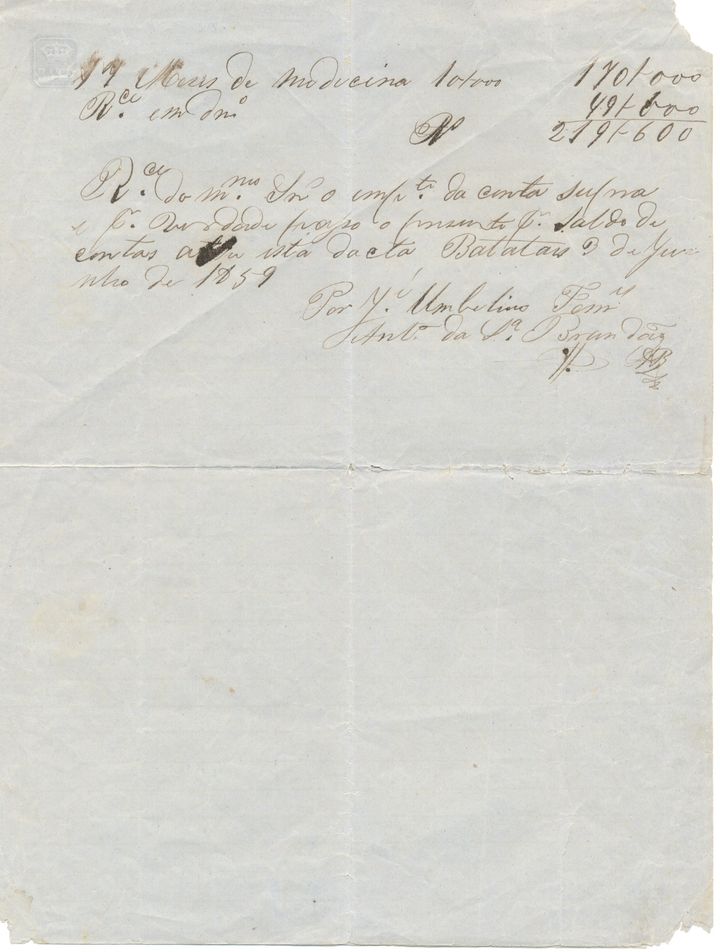 17 Mezes de Medecina 10$000 170$000
R.ce em dnr.o 49$600
Rs 219$600
R.ce do m.mo Snr o emp.te da conta supra
e p.r verdade passo o prezente p.r saldo de
contas athe esta dacta Batatais 3 de Ju
nho de 1859
Por J.é Umbelino Fern.s
Ant.o da S.a Brandão